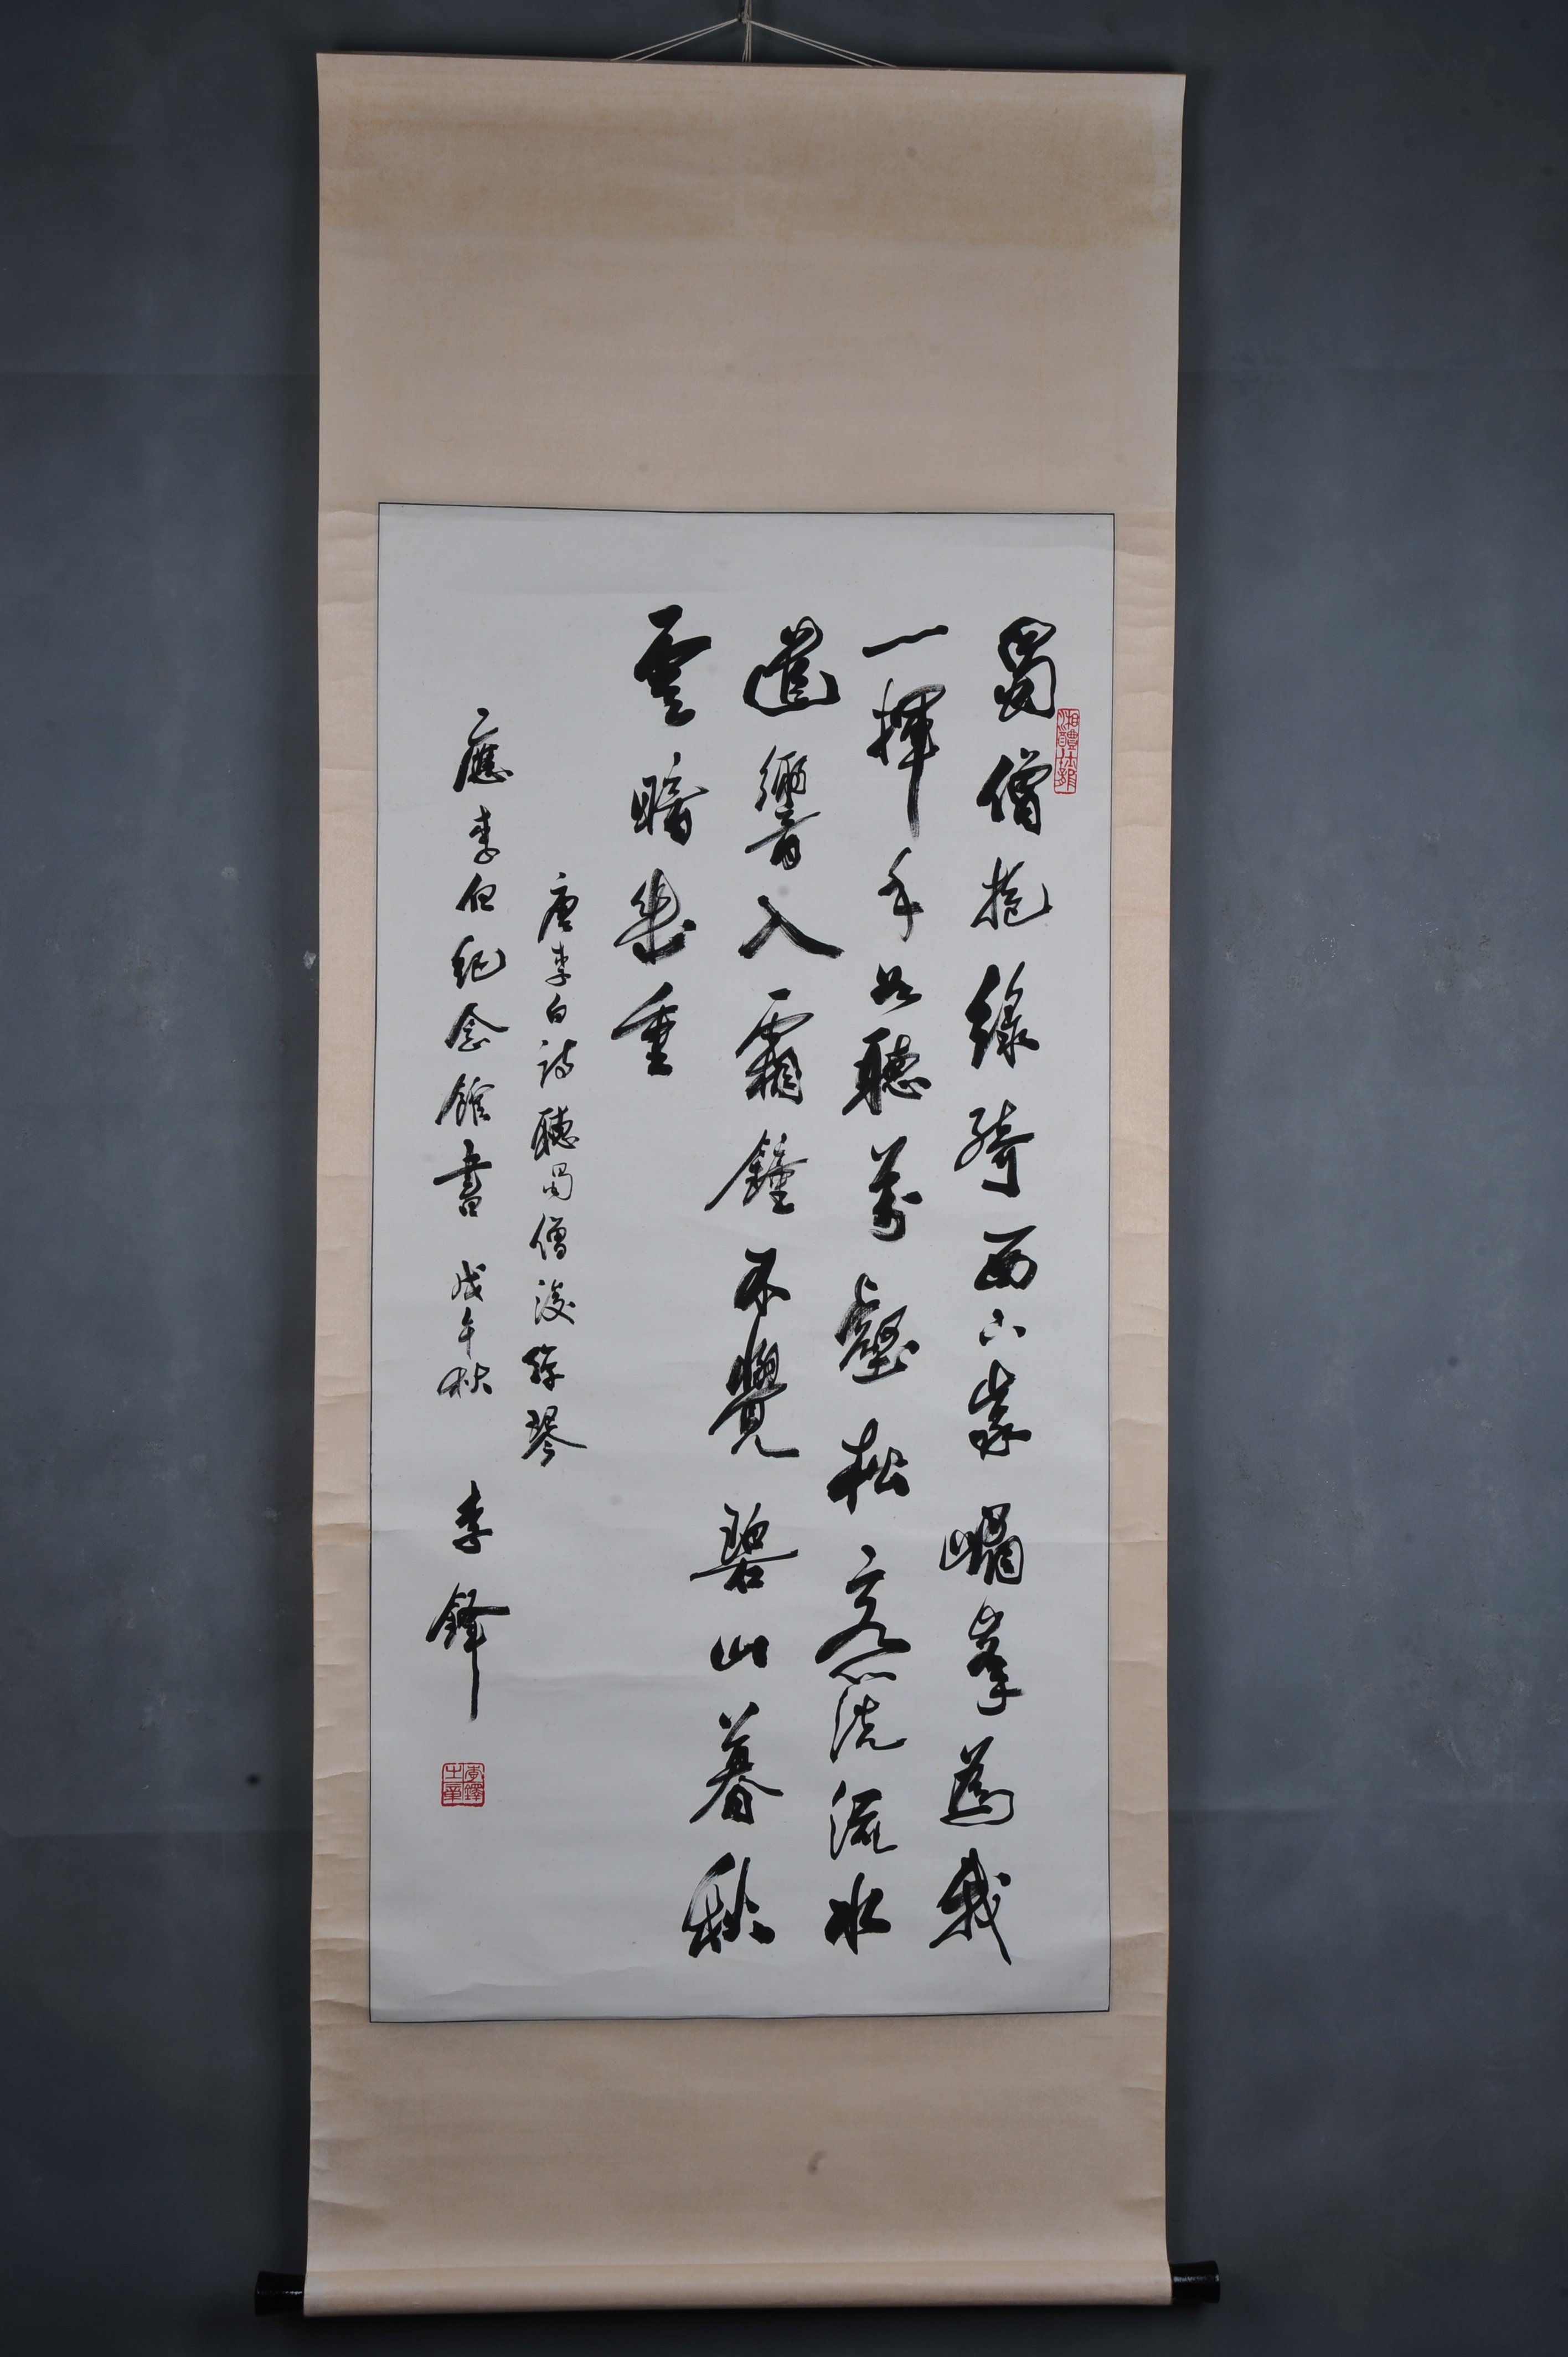 蜀僧抱綠綺西下峩嵋峯為我
一揮手如聽萬壑松客心洗流水
遺響入霜鐘不覺碧山暮秋
雲暗幾重
唐李白詩聽蜀僧濬彈琴
應李白紀念館書 戊午秋 李鐸
李鐸之章